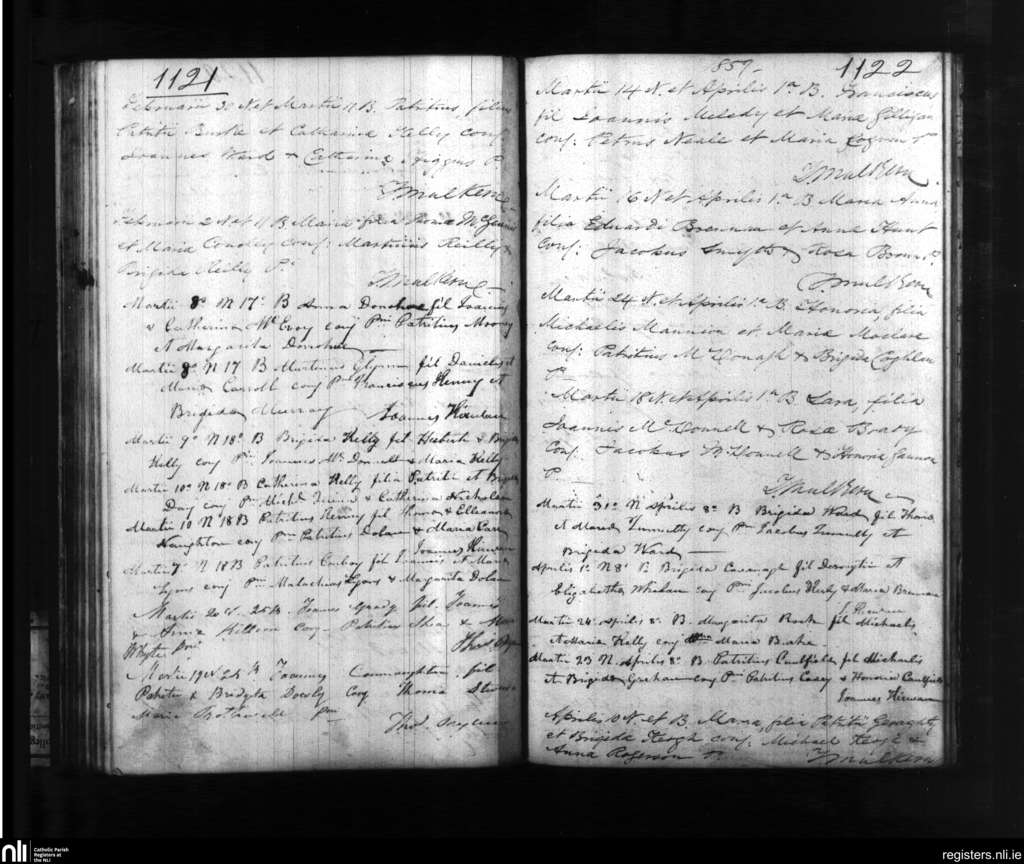 1121
Februarii 30 N et Martii 11 B. Patritius, filius
Patritii Burke et Catharina Kelly conj
Joannes Ward & Catherine Higgins P.
T Mulkern
Februarii 2 N et 11 B Maria filia
et Maria Conolly conj: Martinus Reilly &
Brigida Reilly Ps
T Mulkern
Martii 8º N 17º B Anna Donohoe fil Joannis
& Catherina McEvoy conj Pni Patritius Mooney
et Margarita Donohue
Martii 8º N 17 B Martinus Glynn fil Danielis et
Maria Carroll conj Pni Franciscus Henry et
Brigida Murray Joannes Kirwan
Martii 9º N 18º B Brigida Kelly fil Huberti &
Kelly conj Pni Joannes McDonnell & Maria Kelly
Martii 10º N 18º B Catherina Kelly filia Patritii et
Day conj Pni Michl & Catherina Nicholson
Martii 10 N 18 B Patritius Henry fil Thomæ & Elleanora
Naughton conj Pni Patritius Dolan & Maria
Joannes Kirwan
Martii 7º N 18 B Patritius Conboy fil Joannis et Maria
Lyons conj Pni Malachias Lyons & Margarita Dolan
Martii 20 N. 25 B. Joannes Grady fil Joannis
& Anna Killeen conj Patritius Shea &
Whyte Pni
Martii 19 N 24 B Joannes Connaughton fil
Patritii & Bridgta Dooly conj Thomas
Maria Pni
Thos
1859
1122
Martii 14 N. et Aprilis 1ª B. Franciscus
fil Joannis Meledy et Maria Gilligan
conj: Petrus Neale et Maria
T Mulkern
Martii 16 N et Aprilis 1ª B Maria Anna
filia Eduardi Brennan et Anne Hunt
conj: Jacobus Smyth & Rosa Brown P.
T Mulkern
Martii 24 N. et Aprilis 1ª B. Honoria, filia
Michaelis Mannion et Maria
conj: Patritius McDonagh & Brigida Coghlan
P
Martii 18 N et Aprilis 1ª B Sara, filia
Joannis McDonnell & Rosæ Brady
conj: Jacobus McDonnell & Honoria Gannon
P
T Mulkern
Martii 31º N Aprilis 8º B Brigida Ward fil Thomæ
et Maria Tummulty conj Pni Jacobus Tummulty et
Brigida Ward
Aprilis 1º N 8º B Brigida Cavanagh fil et
Elizabetha Whelan conj Pni Jacobus & Maria Brennan
J. Kirwan
Martii 24 Aprilis 8º B. Margarita fil Michaelis
et Maria Kelly conj Maria
Martii 23 N. Aprilis 8º B. Patritius Caulfield fil Michaelis
et Brigida Graham conj Pni Patritius Casey & Honoria Caulfield
Joannes Kirwan
Aprilis 10 N. et B. Maria, filia Patritii Geraghty
et Brigida Keogh conj: Michael Keogh &
Anna Rogerson P. T Mulkern
nli
Catholic Parish
Registers at
the NLI
registers.nli.ie